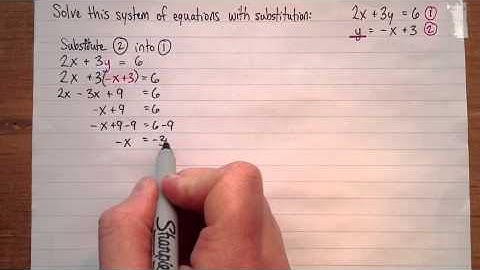 Solve this system of equations with substitution:
2x + 3y = 6 ①
y = -x + 3 ②
Substitute ② into ①
2x + 3y = 6
2x + 3(-x+3) = 6
2x - 3x + 9 = 6
-x + 9 = 6
-x + 9 - 9 = 6 - 9
-x = -3
Sharpie